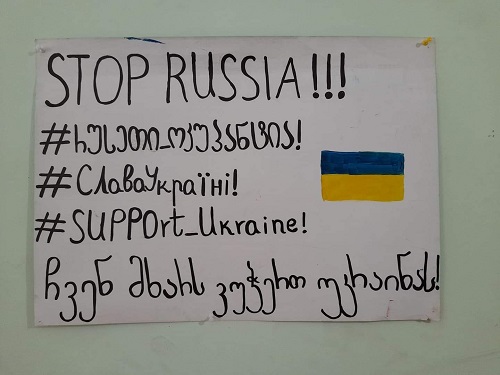 STOP RUSSIA!!!
#რუსეთი_ოკუპანტია!
#СлаваУкраїні!
#SUPPOrt_Ukraine!
ჩვენ მხარს ვუჭერთ უკრაინას!